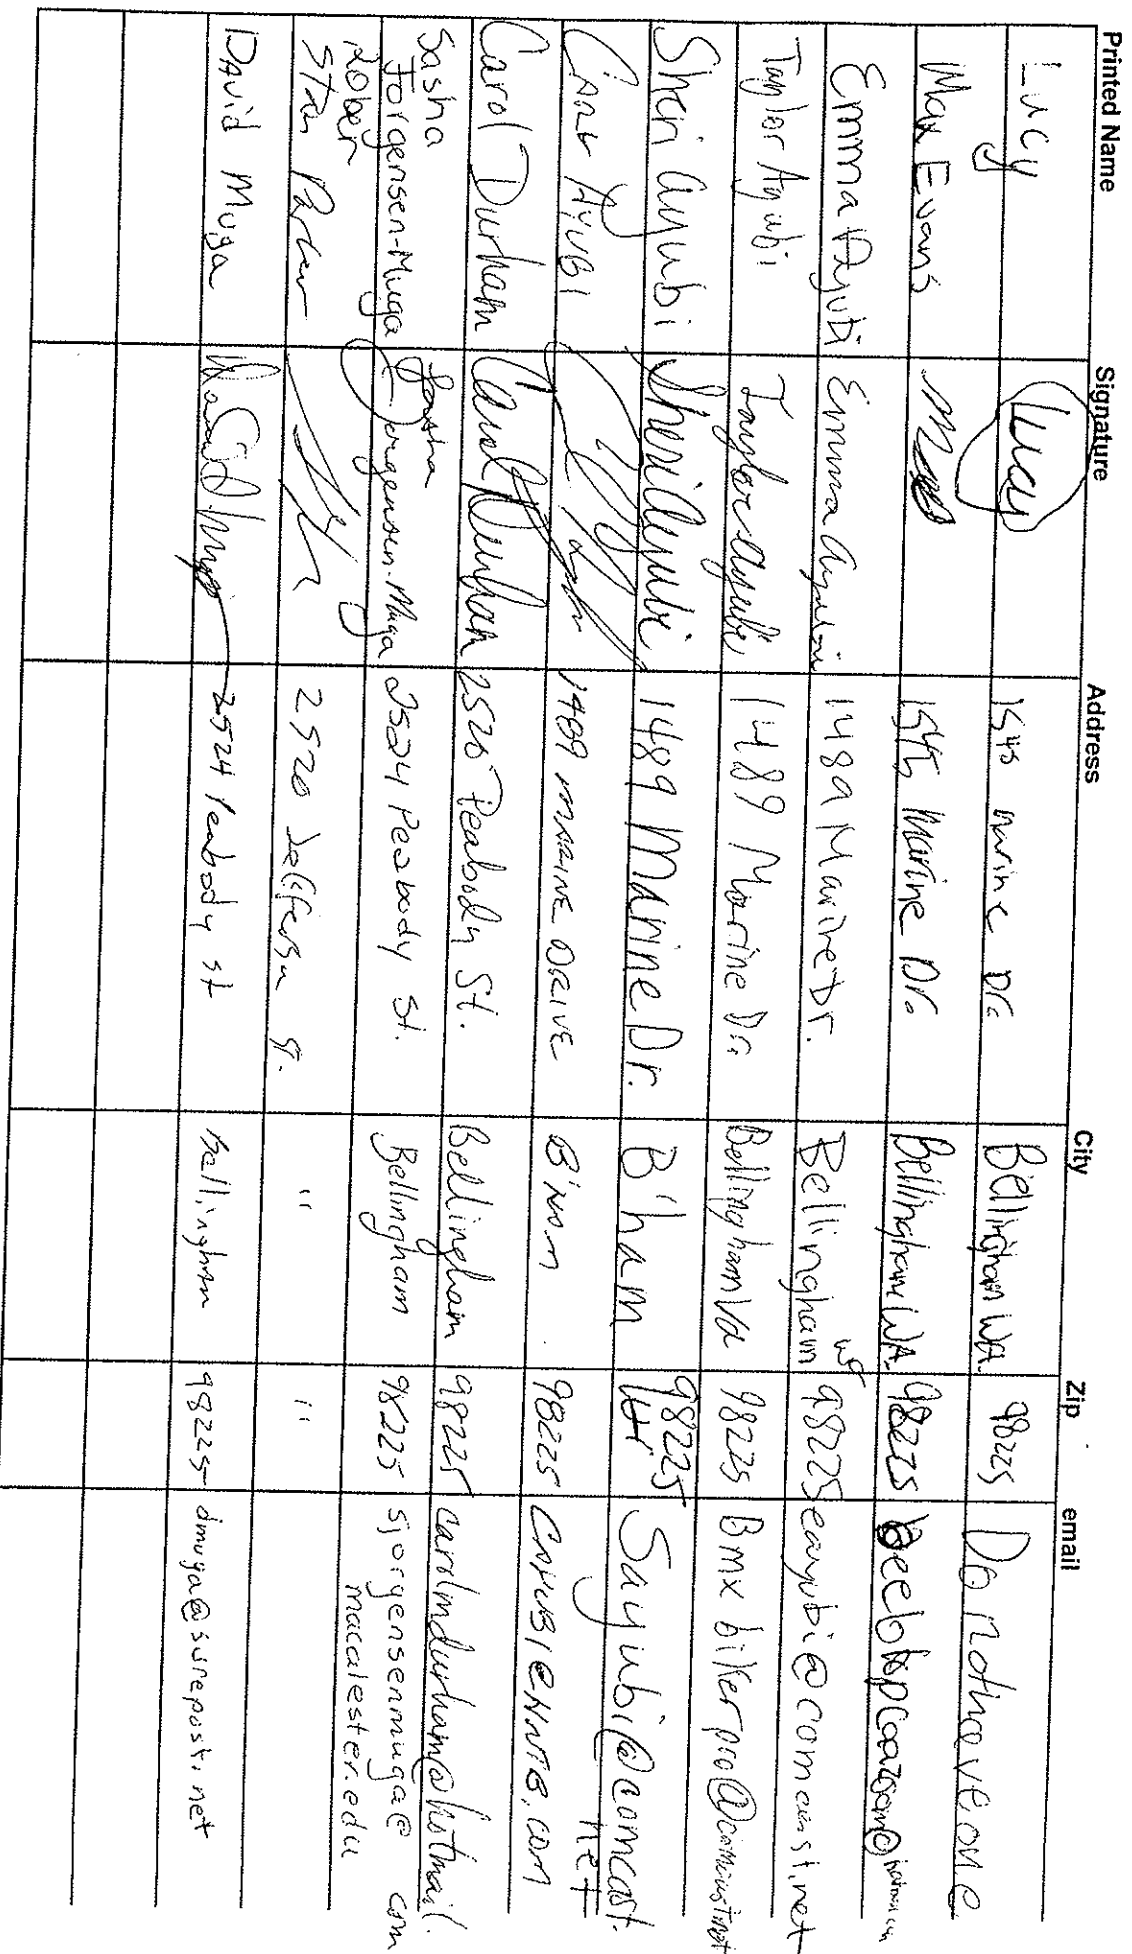 Printed Name Signature Address City Zip email
Lucy Lucy 1545 marine Dr. Bellingham WA. 98225 Do not have one
Max Evans 1545 Marine Dr. Bellingham WA. 98225
Emma Ayubi Emma Ayubi 1489 Marine Dr. Bellingham wa 98225 eayubi@comcast.net
Taylor Ayubi Taylor Ayubi 1489 Marine Dr. Bellingham Wa 98225 Bmx biker pro@comcast.net
Sheri Ayubi Sheri Ayubi 1489 Marine Dr. B'ham 98225 Sayubi@comcast.
net
AYUBI 1489 MARINE DRIVE B'HAM 98225
Carol Durham Carol Durham 2520 Peabody St. Bellingham 98225 carolmdurham@hotmail.
com
Sasha Sasha
Jorgensen-Muga Jorgensen-Muga 2524 Peabody St. Bellingham 98225 sjorgensenmuga@
macalester.edu
Stan Parker 2520 Jefferson St. " "
David Muga David Muga 2524 Peabody st Bellingham 98225 dmuga@surepost.net